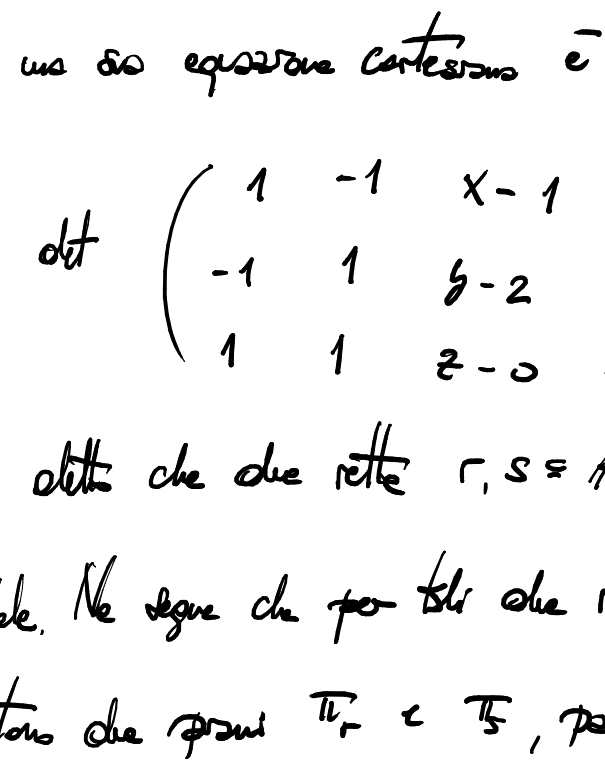 una sua equazione cartesiana è
1 -1 x - 1
det ( -1 1 y - 2
1 1 z - 0
detto che due rette r, s ⊆
Ne segue che per tali due
due piani π_r e π_s, pa